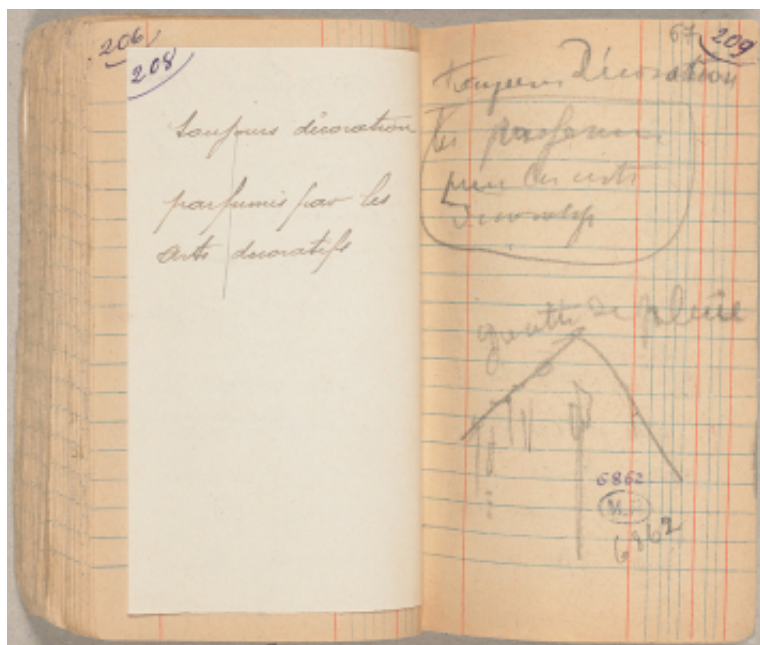 206
208
toujours décoration
parfumés par les
arts decoratifs
67 209
Toujours Décoration
les parfums
pour les arts
goutte de pluie
6862
6862